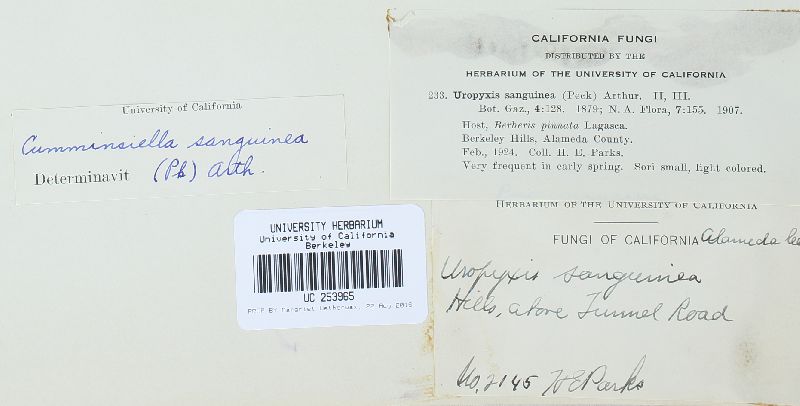 University of California
Cumminsiella sanguinea
Determinavit (Pk) Arth.
UNIVERSITY HERBARIUM
University of California
Berkeley
UC 253965
22 Aug 2016
CALIFORNIA FUNGI
DISTRIBUTED BY THE
HERBARIUM OF THE UNIVERSITY OF CALIFORNIA
233. Uropyxis sanguinea (Peck) Arthur. II, III.
Bot. Gaz., 4:128. 1879; N. A. Flora, 7:155. 1907.
Host, Berberis pinnata Lagasca.
Berkeley Hills, Alameda County.
Feb., 1924. Coll. H. E. Parks.
Very frequent in early spring. Sori small, light colored.
HERBARIUM OF THE UNIVERSITY OF CALIFORNIA
FUNGI OF CALIFORNIA Alameda
Uropyxis sanguinea
Hills, above Tunnel Road
No. 2145 HE Parks